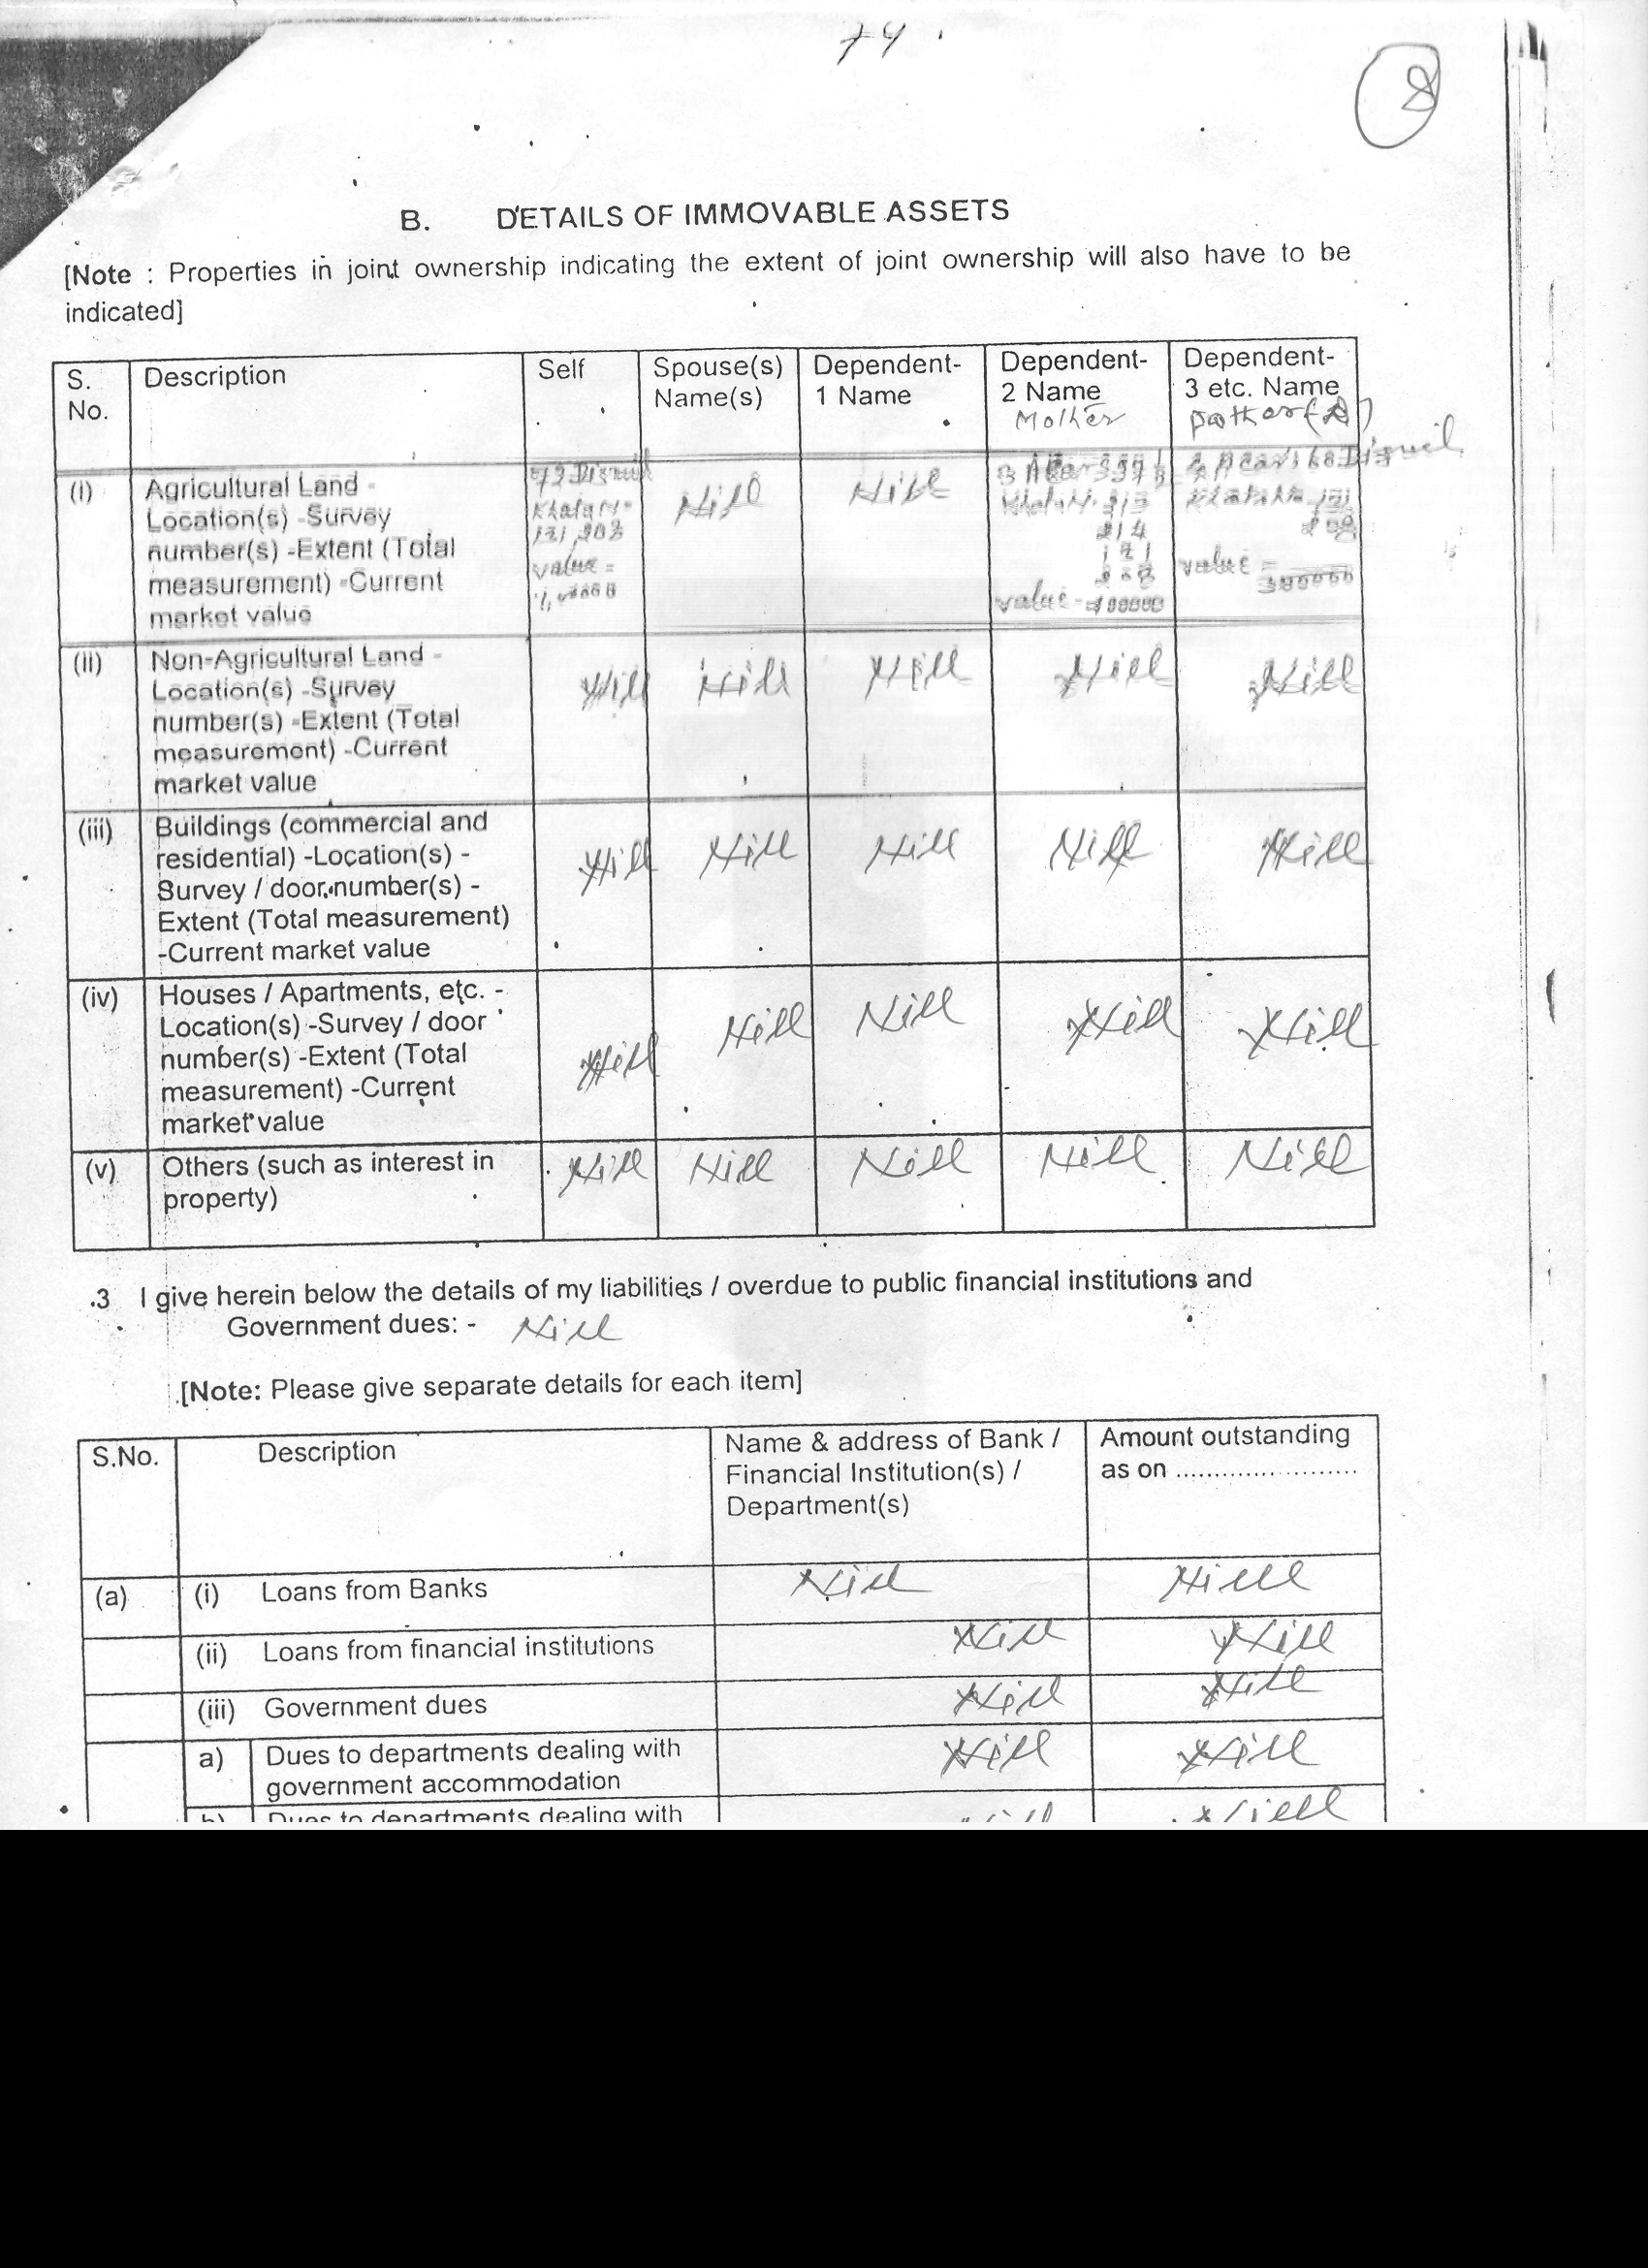 74
8
B. DETAILS OF IMMOVABLE ASSETS
[Note : Properties in joint ownership indicating the extent of joint ownership will also have to be
indicated]
S. No.
Description
Self
Spouse(s) Name(s)
Dependent-1 Name
Dependent-2 Name
Mother
Dependent-3 etc. Name
(i)
Agricultural Land -
Location(s) -Survey
number(s) -Extent (Total
measurement) -Current
market value
value =
Nill
Nill
value -
value =
300000
(ii)
Non-Agricultural Land -
Location(s) -Survey
number(s) -Extent (Total
measurement) -Current
market value
Nill Nill Nill Nill Nill
(iii)
Buildings (commercial and
residential) -Location(s) -
Survey / door number(s) -
Extent (Total measurement)
-Current market value
Nill Nill Nill Nill Nill
(iv)
Houses / Apartments, etc. -
Location(s) -Survey / door
number(s) -Extent (Total
measurement) -Current
market value
Nill Nill Nill Nill Nill
(v)
Others (such as interest in
property)
Nill Nill Nill Nill Nill
.3 I give herein below the details of my liabilities / overdue to public financial institutions and
Government dues: - Nill
[Note: Please give separate details for each item]
S.No.
Description
Name & address of Bank /
Financial Institution(s) /
Department(s)
Amount outstanding
as on ........................
(a) (i) Loans from Banks Nill Nill
(ii) Loans from financial institutions Nill Nill
(iii) Government dues Nill Nill
a) Dues to departments dealing with
government accommodation
Nill Nill
b) Dues to departments dealing with